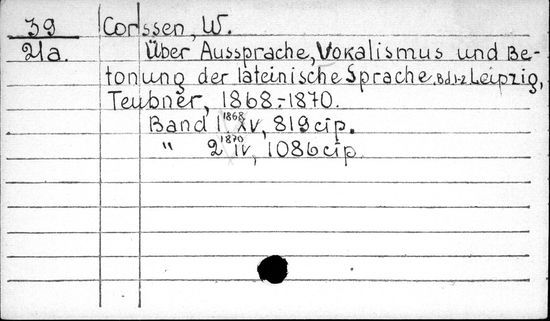 39 Corssen, W.
21a. Über Aussprache, Vokalismus und Be-
tonung der lateinische Sprache. Bd 1-2 Leipzig,
Teubner, 1868-1870.
Band 1 1868 XV, 819 стр.
" 2 1870 IV, 1086 стр.